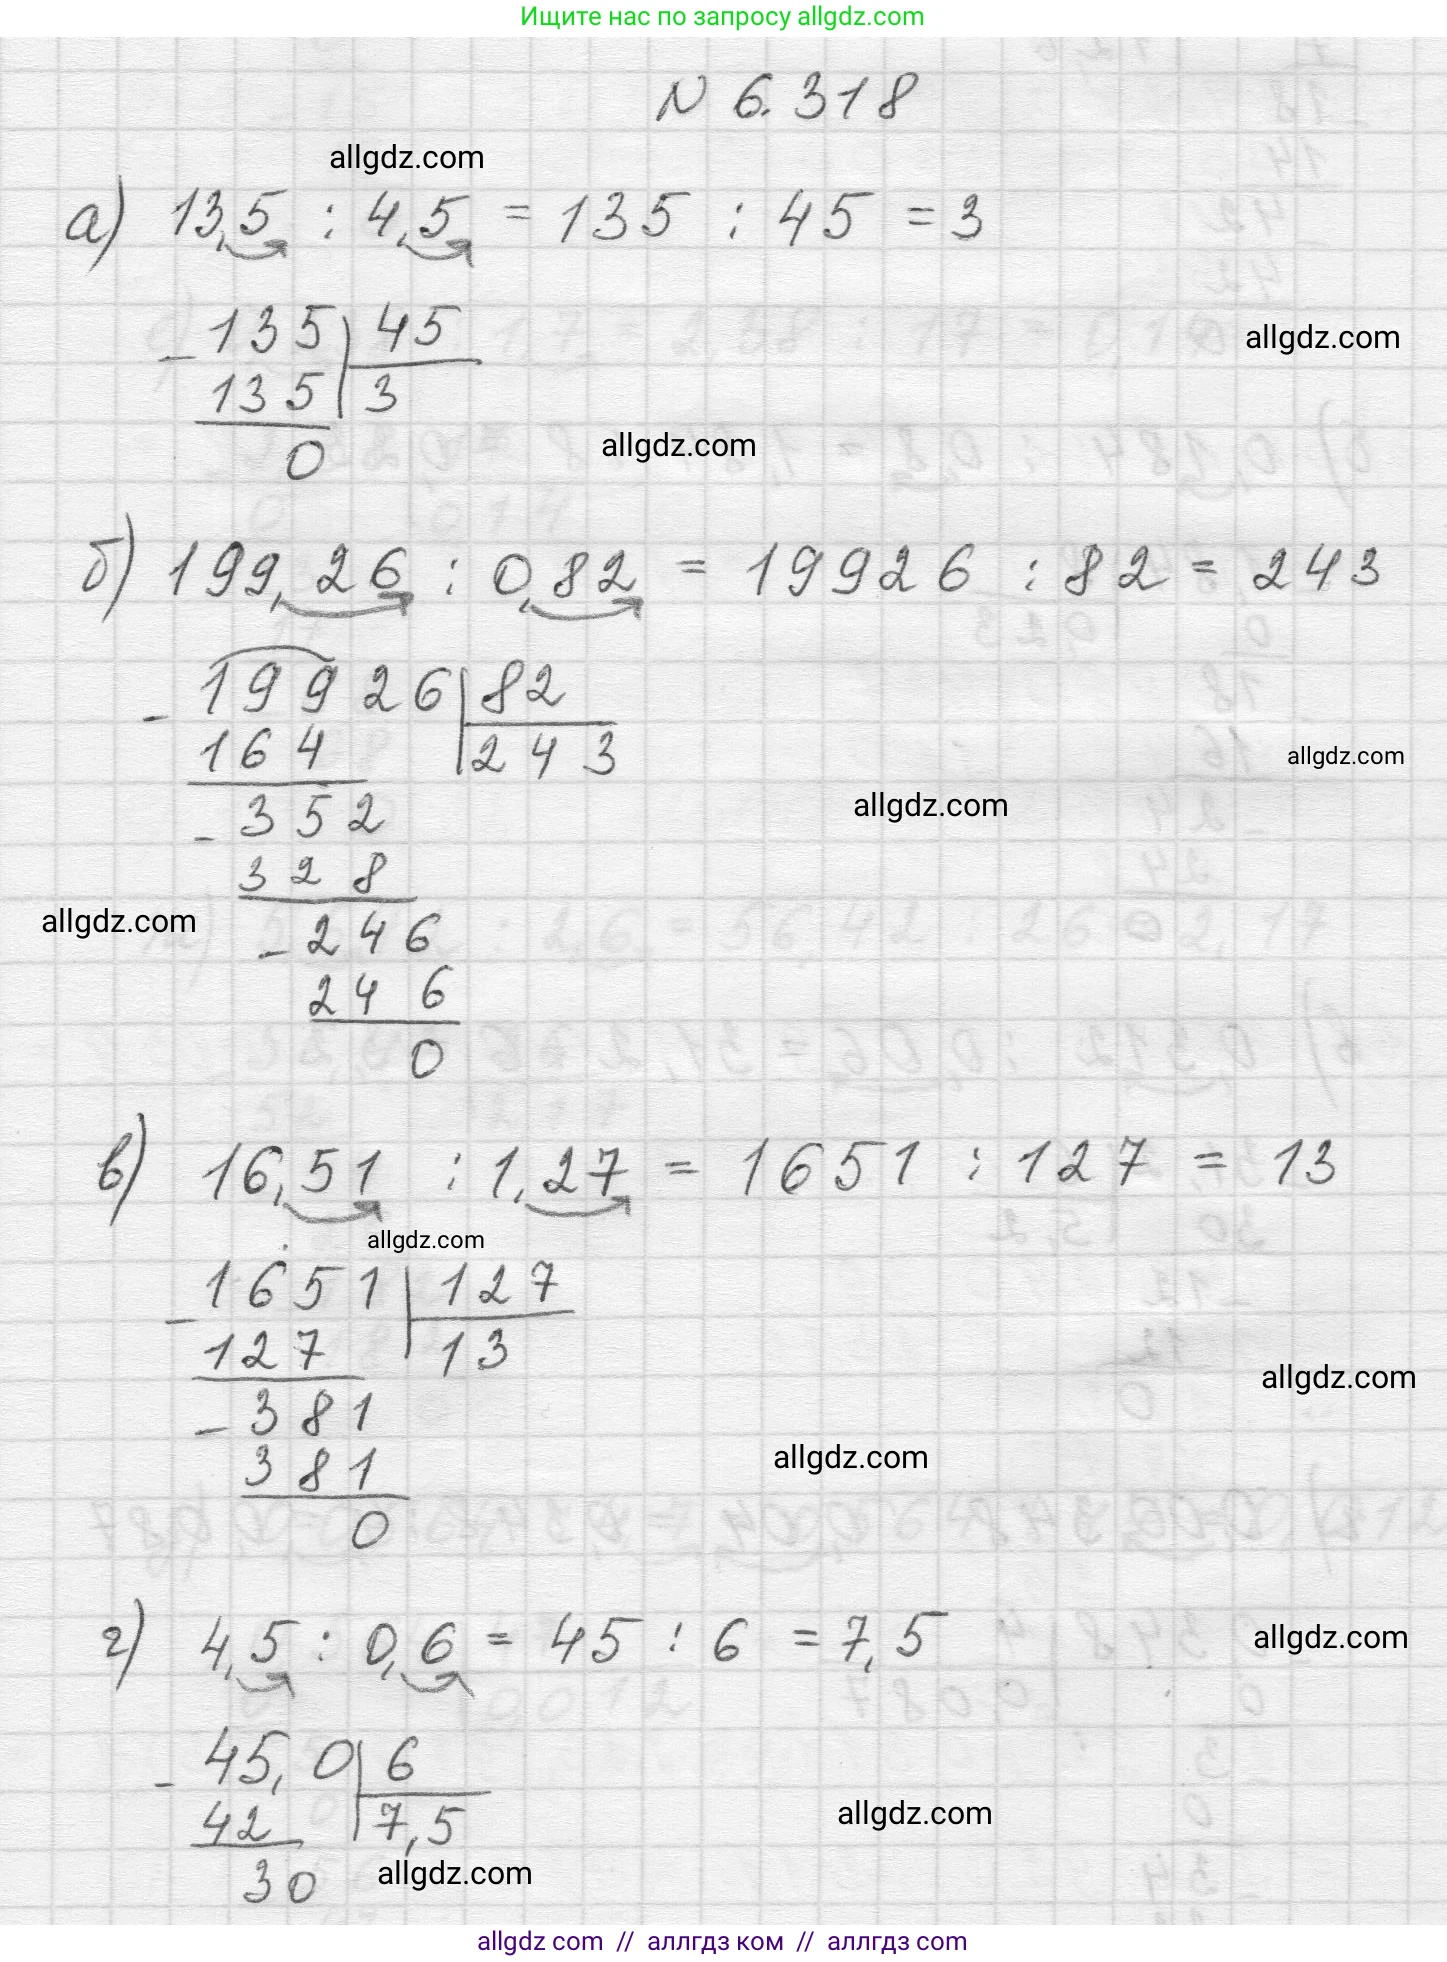 Ищите нас по запросу allgdz.com
N 6.318
allgdz.com
а) 13,5 : 4,5 = 135 : 45 = 3
- 135 | 45
allgdz.com
135 | 3
0
allgdz.com
б) 199,26 : 0,82 = 19926 : 82 = 243
- 19926 | 82
164 | 243
allgdz.com
- 352
allgdz.com
328
allgdz.com
- 246
246
0
в) 16,51 : 1,27 = 1651 : 127 = 13
allgdz.com
- 1651 | 127
127 | 13
allgdz.com
- 381
allgdz.com
381
0
г) 4,5 : 0,6 = 45 : 6 = 7,5
allgdz.com
- 45,0 | 6
42 | 7,5
allgdz.com
30
allgdz.com
allgdz com // аллгдз ком // аллгдз com